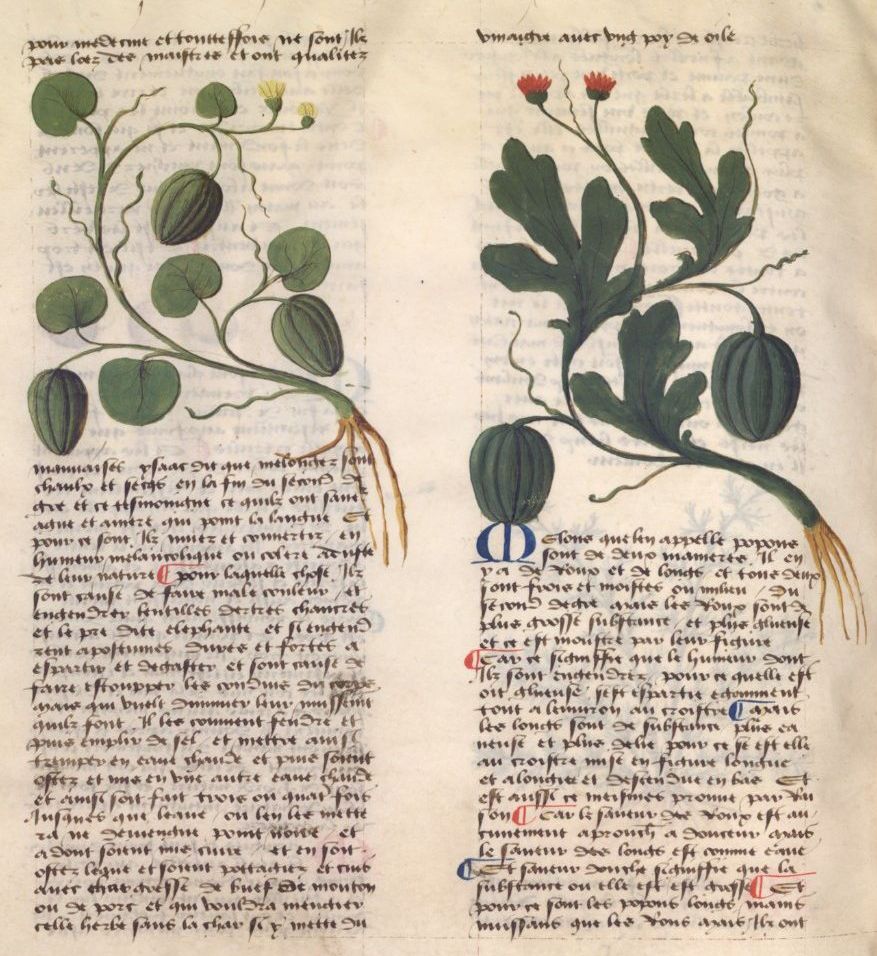 pour medecine et touteffois ne sont ilz
pas loez des maistres et ont qualitez
mauuaises ysaac dit que melongez sont
chaulx et secqs en la fin du second de
gre et ce tesmoingne ce quilz ont saue
aigue et amere qui point la langue Et
pour ce sont ilz muez et conuertiz en
humeur melancolique ou colere aduste
de leur nature pour laquelle chose ilz
sont cause de faire male couleur et
engendrer lentilles dertres chancres
et le pre dite elephante et si engend
rent apostumes dures et fortes a
espartir et degaster et sont cause de
faire estoupper les conduis du corps
mais qui vuelt diminuer leur nuissemt
quilz font Il les conuient fendre et
puis emplir de sel et mettre ainsi
tremper en eaue chaude et puis soient
ostez et mis en vne autre eaue chaude
et ainsi soit fait trois ou quatr fois
Jusques que leaue ou len les mette
ra ne deuiengne point noire et
a dont soient mis cuire et en soit
oster leque et soient pottagiez et cuis
auec char grasse de buef de mouton
ou de porc et qui vouldra mengier
celle herbe sans la char si y mette du
vinaigre auec vng poy de oile
Melons que len appelle popons
sont de deux manieres Il en
y a de Roux et de longs et tous deux
sont frois et moistes ou milieu du
second degre mais les Roux sont de
plus grosse substance et plus glueuse
et ce est moustre par leur figure
Car ce signiffie que le humeur dont
ilz sont engendrez pour ce quelle est
oit glueuse sest espartie egoument
tout a lenuiron au croistre mais
les longs sont de substance plus ea
ueuse et plus delie pour ce se est elle
au croistre mise en figure longue
et alongiee et descendue en bas Et
est aussi ce meismes prouue par Rai
son Car le saueur des Roux est au
cunement aprouch a douceur mais
le saueur des longs est comme eaue
Et saueur doulche signiffie que la
substance ou elle est est grosse Et
pour ce sont les popons longs mains
nuissans que les Rons mais Ilz ont